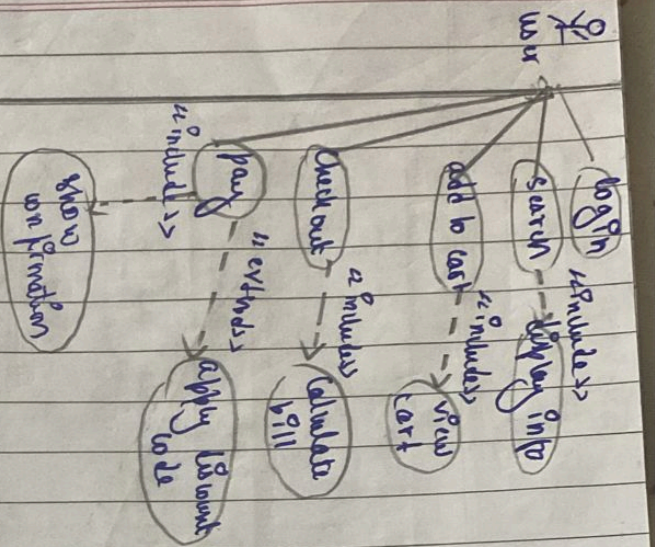 user
login
search
<<includes>>
display info
add to cart
<<includes>>
view
cart
check out
<<includes>>
Calculate
bill
pay
<<extends>>
apply discount
code
<<includes>>
show
confirmation